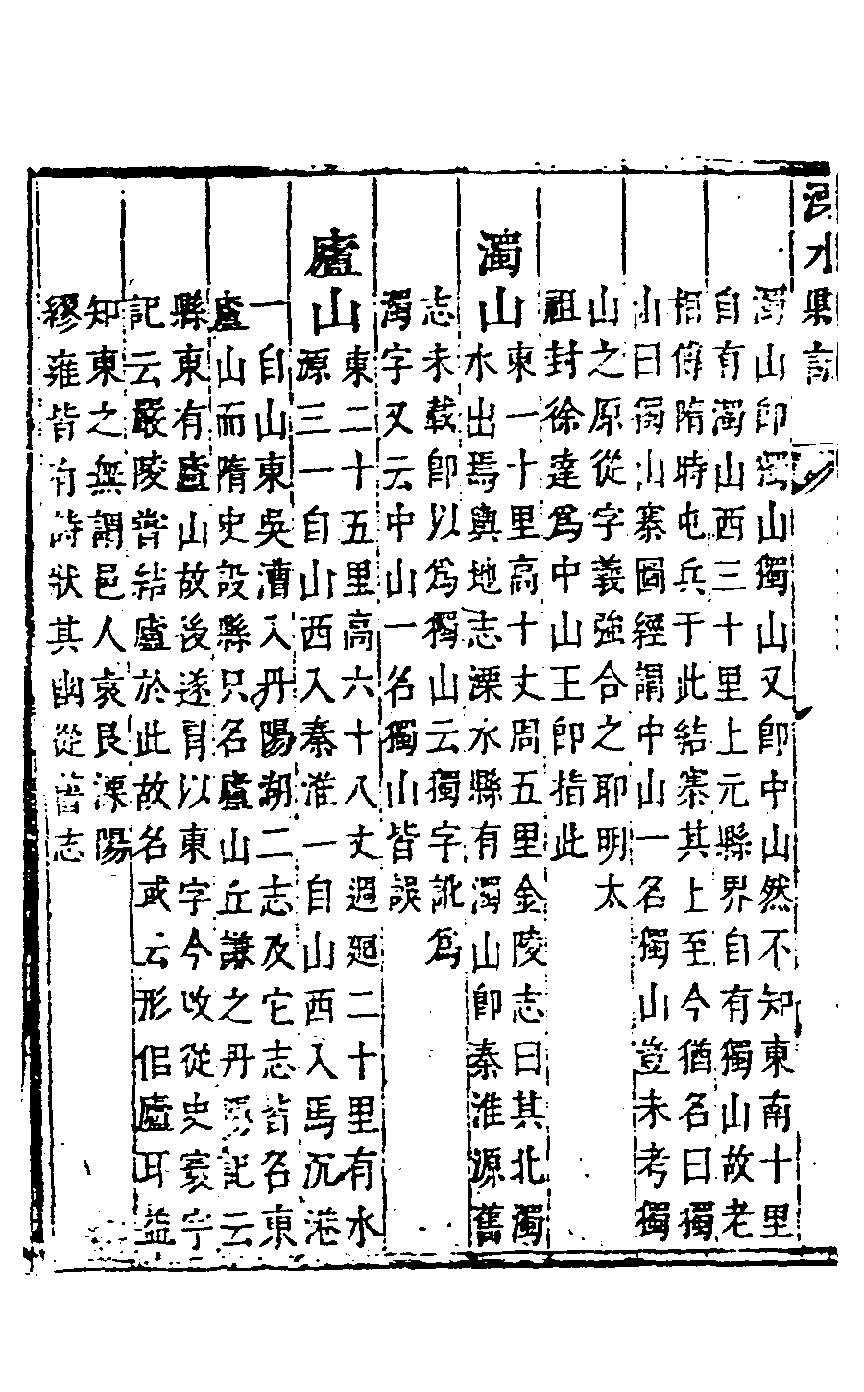 水縣誌
濁山卽濁山獨山又卽中山然不知東南十里
自有濁山西三十里上元縣界自有獨山故老
相傳隋時屯兵于此結寨其上至今猶名曰獨
山曰獨山寨圖經謂中山一名獨山豈未考獨
山之原從字義強合之耶明太
祖封徐達爲中山王卽指此
濁山東一十里高十丈周五里金陵志曰其北濁
水出焉輿地志溧水縣有濁山卽秦淮源舊
志未载卽以爲獨山云獨字訛爲
濁字又云中山一名獨山皆誤
廬山東二十五里高六十八丈週廻二十里有水
源三一自山西入秦淮一自山西入馬沉港
一自山東吳漕入丹陽湖二志及它志皆名東
廬山而隋史設縣只名廬山丘謙之丹陽記云
縣東有廬山故後遂冒以東字今改從史寰宇
記云嚴陵嘗結廬於此故名或云形侣廬耳益
知東之無謂邑人哀良溧陽
繆雍皆有詩狀其幽從舊志